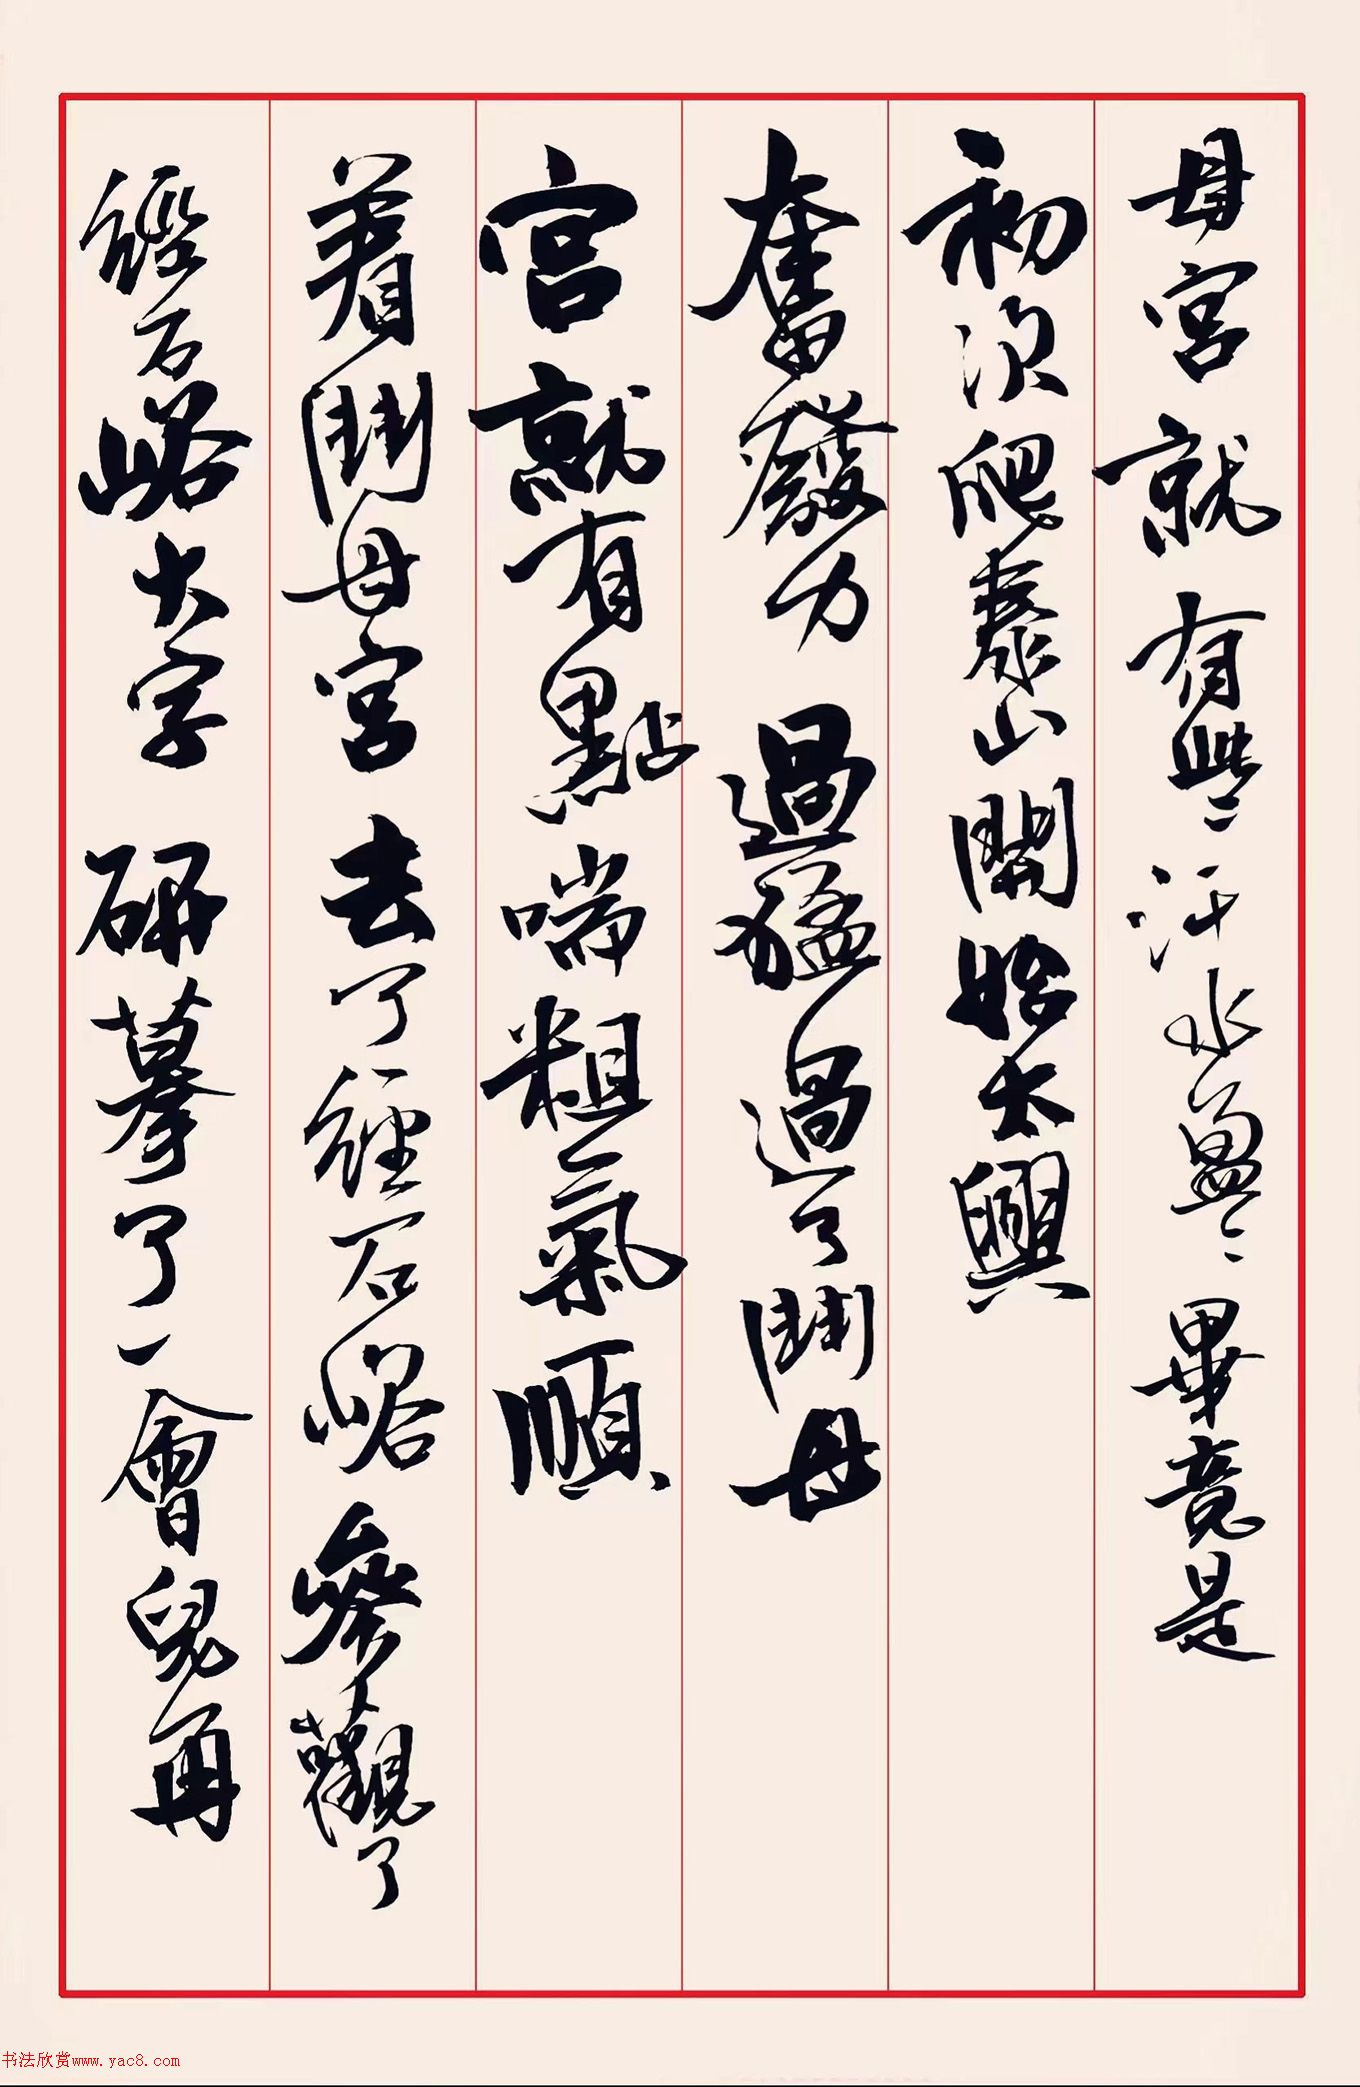 母宮就有些汗水盈盈畢竟是
初次爬泰山開始大興
奮發力過猛過了鬥母
宮就有點喘粗氣順
着鬥母宮去了經石峪參觀了
經石峪大字研摹了一會兒再
书法欣赏www.yac8.com